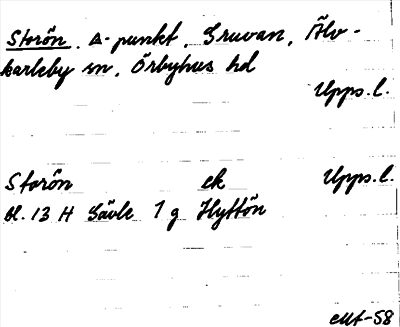 Storön. △-punkt, Gruvan, Älv-
karleby sn, Örbyhus hd
Upps.l.
Storön ek Upps.l.
bl. 13 H Gävle 1 g Hyttön
-58